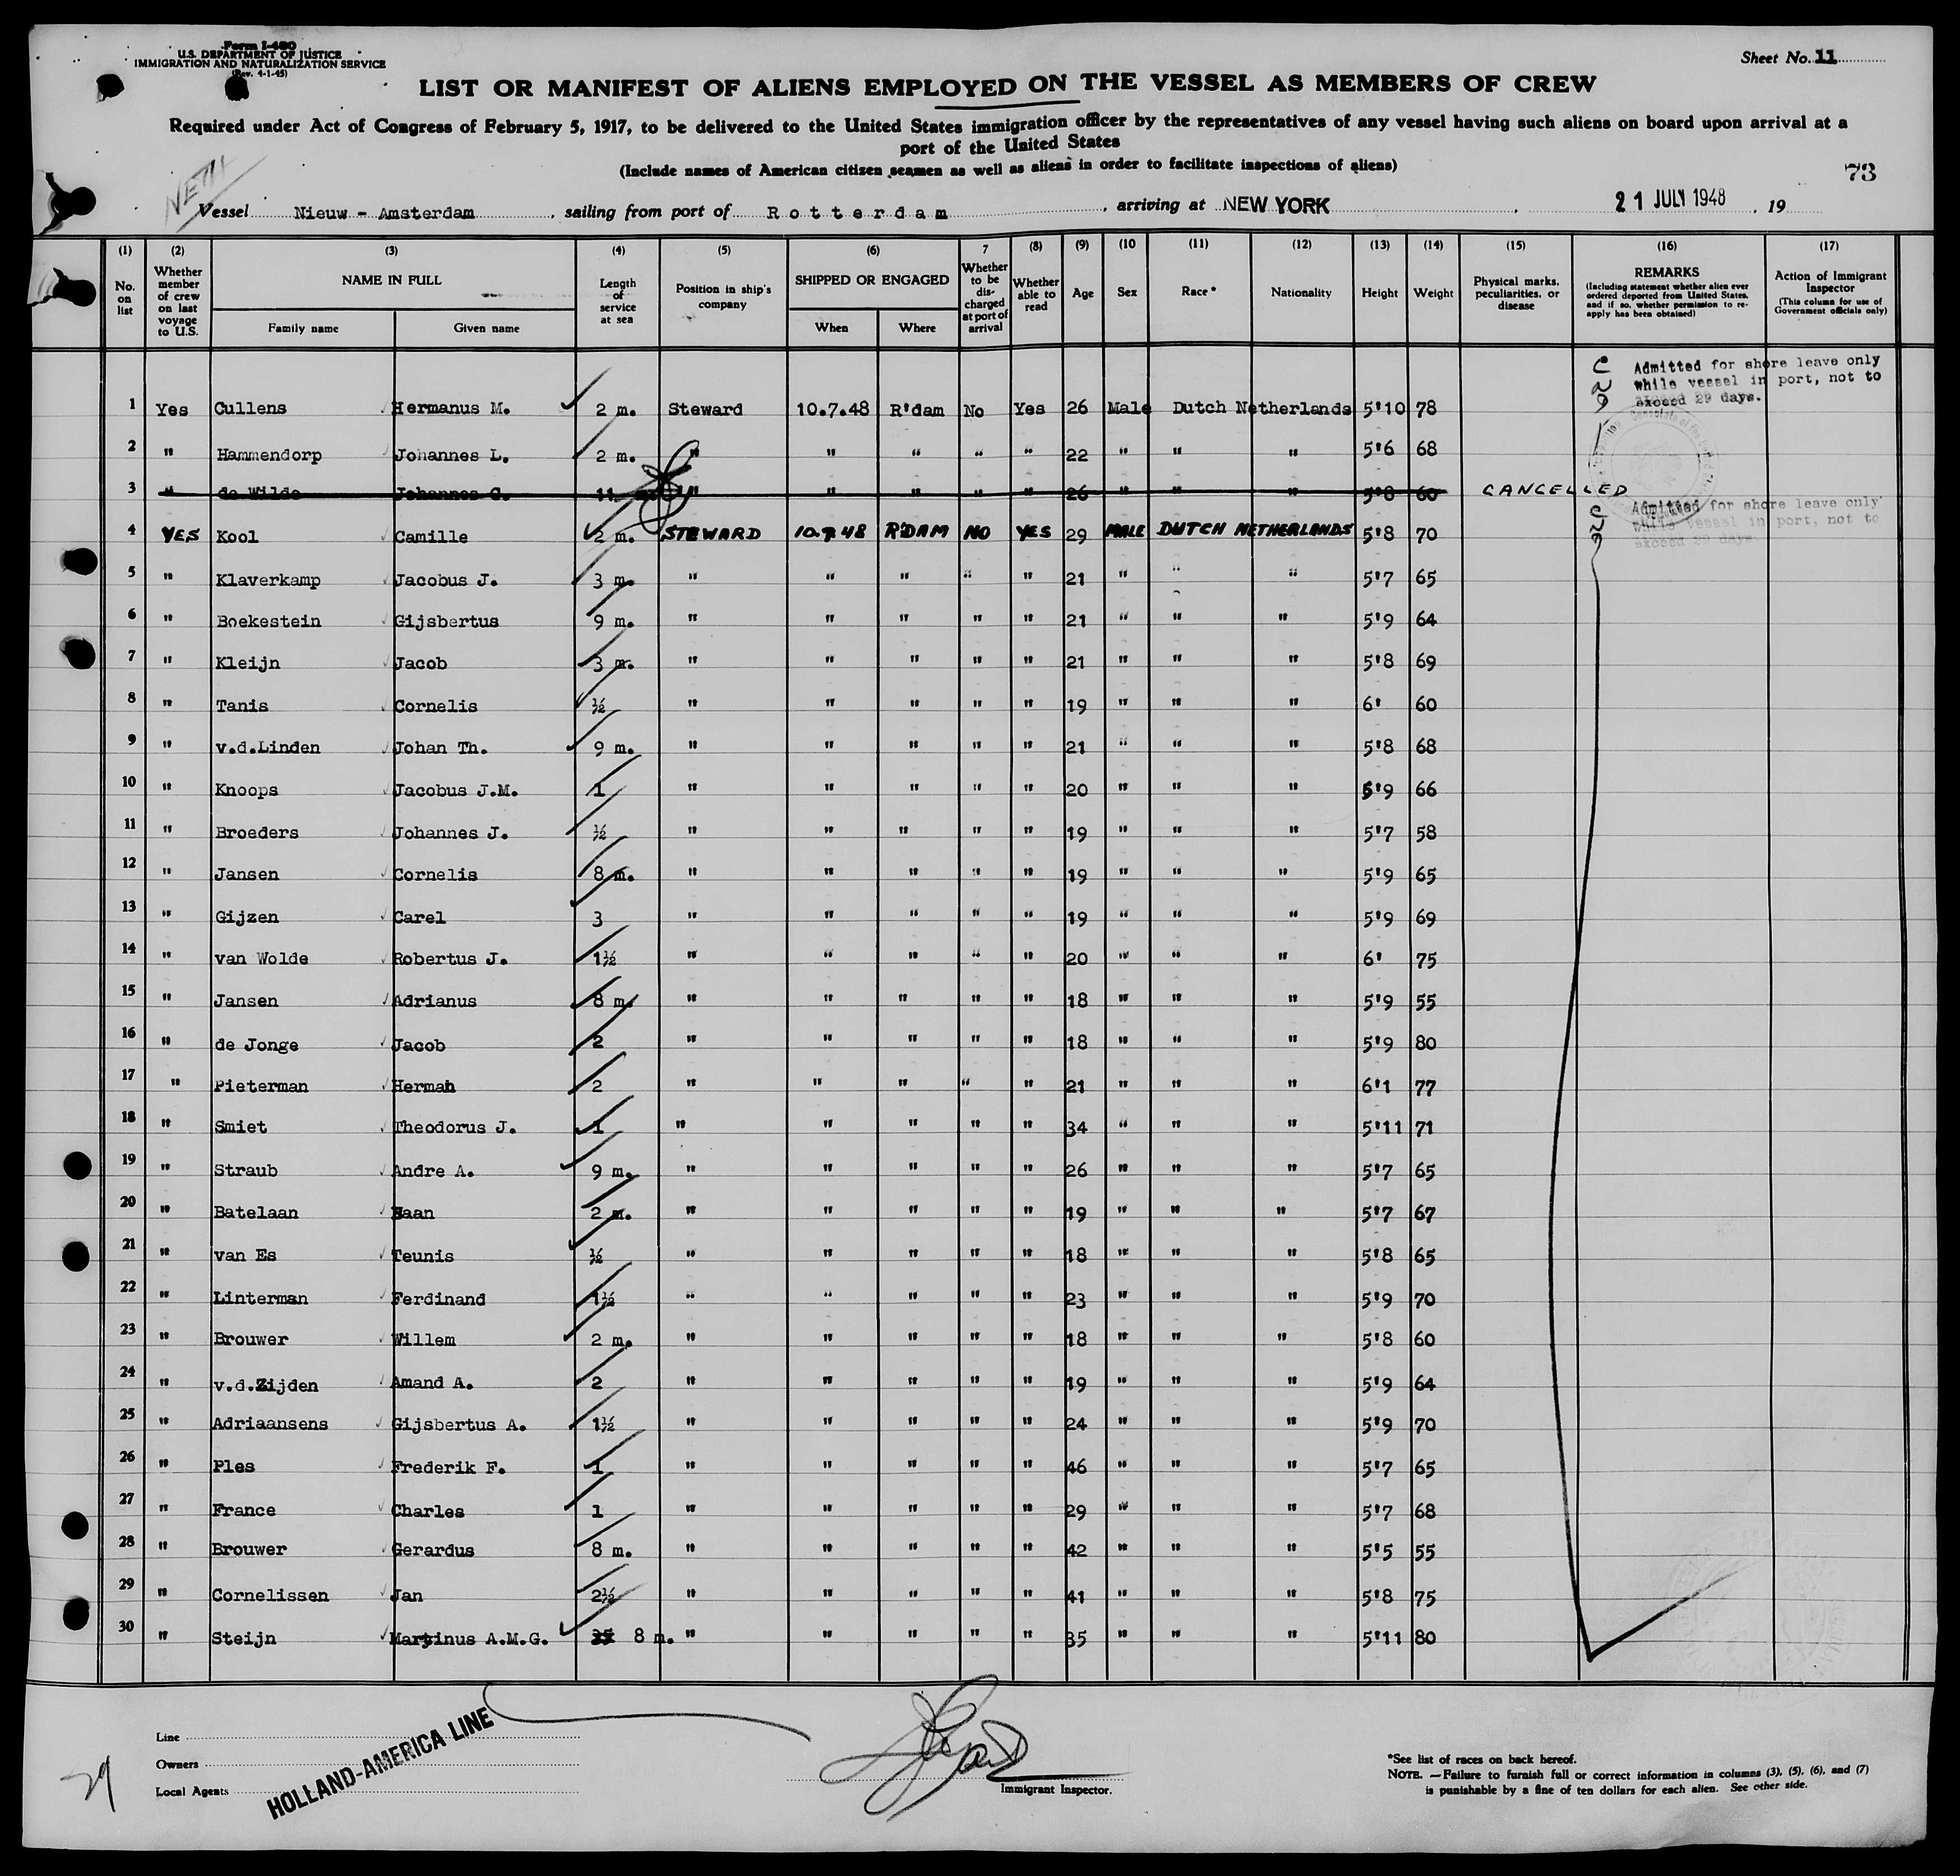 Form I-480
U.S. DEPARTMENT OF JUSTICE
IMMIGRATION AND NATURALIZATION SERVICE
(Rev. 4-1-45)
Sheet No. 11
LIST OR MANIFEST OF ALIENS EMPLOYED ON THE VESSEL AS MEMBERS OF CREW
Required under Act of Congress of February 5, 1917, to be delivered to the United States immigration officer by the representatives of any vessel having such aliens on board upon arrival at a
port of the United States
(Include names of American citizen seamen as well as aliens in order to facilitate inspections of aliens)
73
NETH
Vessel Nieuw - Amsterdam, sailing from port of Rotterdam, arriving at NEW YORK, 21 JULY 1948, 19
(1) (2) (3) (4) (5) (6) 7 (8) (9) (10 (11) (12) (13) (14) (15) (16) (17)
No. on list
Whether member of crew on last voyage to U.S.
NAME IN FULL
Family name Given name
Length of service at sea
Position in ship's company
SHIPPED OR ENGAGED
When Where
Whether to be discharged at port of arrival
Whether able to read
Age Sex Race* Nationality Height Weight
Physical marks, peculiarities, or disease
REMARKS
(Including statement whether alien ever ordered deported from United States, and if so, whether permission to re-apply has been obtained)
Action of Immigrant Inspector
(This column for use of Government officials only)
Admitted for shore leave only
while vessel in port, not to
exceed 29 days.
1 Yes Cullens Hermanus M. 2 m. Steward 10.7.48 R'dam No Yes 26 Male Dutch Netherlands 5'10 78
2 " Hammendorp Johannes L. 2 m. " " " " " 22 " " " 5'6 68
3 " de Wilde Johannes C. 11 m. " " " " " 26 " " " 5'8 60 CANCELLED
Admitted for shore leave only
while vessel in port, not to
exceed 29 days.
4 YES Kool Camille 2 m. STEWARD 10.7.48 R'DAM NO YES 29 MALE DUTCH NETHERLANDS 5'8 70
5 " Klaverkamp Jacobus J. 3 m. " " " " " 21 " " " 5'7 65
6 " Boekestein Gijsbertus 9 m. " " " " " 21 " " " 5'9 64
7 " Kleijn Jacob 3 m. " " " " " 21 " " " 5'8 69
8 " Tanis Cornelis ½ " " " " " 19 " " " 6' 60
9 " v.d.Linden Johan Th. 9 m. " " " " " 21 " " " 5'8 68
10 " Knoops Jacobus J.M. 1 " " " " " 20 " " " 5'9 66
11 " Broeders Johannes J. ½ " " " " " 19 " " " 5'7 58
12 " Jansen Cornelis 8 m. " " " " " 19 " " " 5'9 65
13 " Gijzen Carel 3 " " " " " 19 " " " 5'9 69
14 " van Wolde Robertus J. 1½ " " " " " 20 " " " 6' 75
15 " Jansen Adrianus 8 m. " " " " " 18 " " " 5'9 55
16 " de Jonge Jacob 2 " " " " " 18 " " " 5'9 80
17 " Pieterman Herman 2 " " " " " 21 " " " 6'1 77
18 " Smiet Theodorus J. 1 " " " " " 34 " " " 5'11 71
19 " Straub Andre A. 9 m. " " " " " 26 " " " 5'7 65
20 " Batelaan 2 m. " " " " " 19 " " " 5'7 67
21 " van Es Teunis ½ " " " " " 18 " " " 5'8 65
22 " Linterman Ferdinand 1½ " " " " " 23 " " " 5'9 70
23 " Brouwer Willem 2 m. " " " " " 18 " " " 5'8 60
24 " v.d.Zijden Amand A. 2 " " " " " 19 " " " 5'9 64
25 " Adriaansens Gijsbertus A. 1½ " " " " " 24 " " " 5'9 70
26 " Ples Frederik F. 1 " " " " " 46 " " " 5'7 65
27 " France Charles 1 " " " " " 29 " " " 5'7 68
28 " Brouwer Gerardus 8 m. " " " " " 42 " " " 5'5 55
29 " Cornelissen Jan 2½ " " " " " 41 " " " 5'8 75
30 " Steijn Martinus A.M.G. 8 m. " " " " " 35 " " " 5'11 80
Line
Owners
Local Agents
HOLLAND-AMERICA LINE
29
Immigrant Inspector.
*See list of races on back hereof.
NOTE.—Failure to furnish full or correct information in columns (3), (5), (6), and (7)
is punishable by a fine of ten dollars for each alien. See other side.